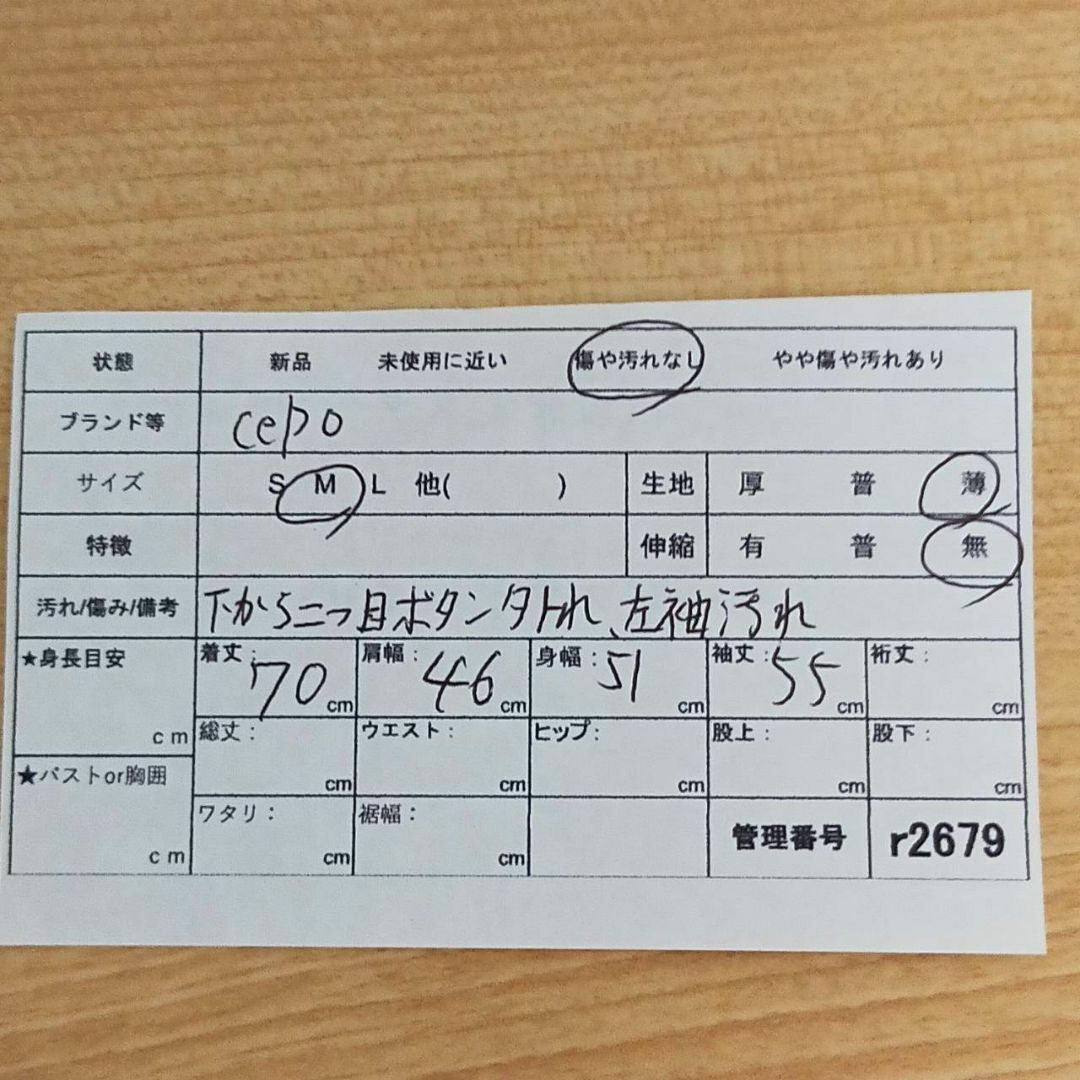 状態 新品 未使用に近い 傷や汚れなし やや傷や汚れあり
ブランド等 cepo
サイズ S M L 他( ) 生地 厚 普 薄
特徴 伸縮 有 普 無
汚れ/傷み/備考 下から二つ目ボタン外れ、左袖汚れ
★身長目安 cm 着丈: 70 cm 肩幅: 46 cm 身幅: 51 cm 袖丈: 55 cm 裄丈: cm
総丈: cm ウエスト: cm ヒップ: cm 股上: cm 股下: cm
★バストor胸囲 cm ワタリ: cm 裾幅: cm 管理番号 r2679